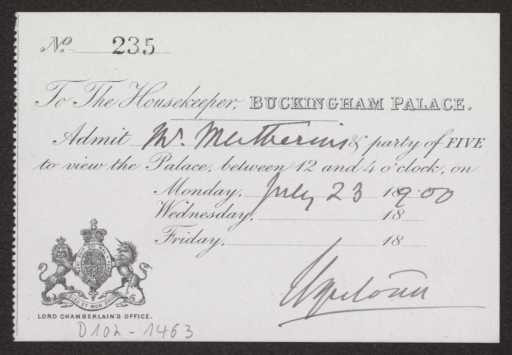 No. 235
To The Housekeeper, BUCKINGHAM PALACE.
Admit Mr. & party of FIVE
to view the Palace, between 12 and 4 o'clock, on
Monday, July 23 1900
Wednesday, 18
Friday, 18
LORD CHAMBERLAIN'S OFFICE.
D102-1463